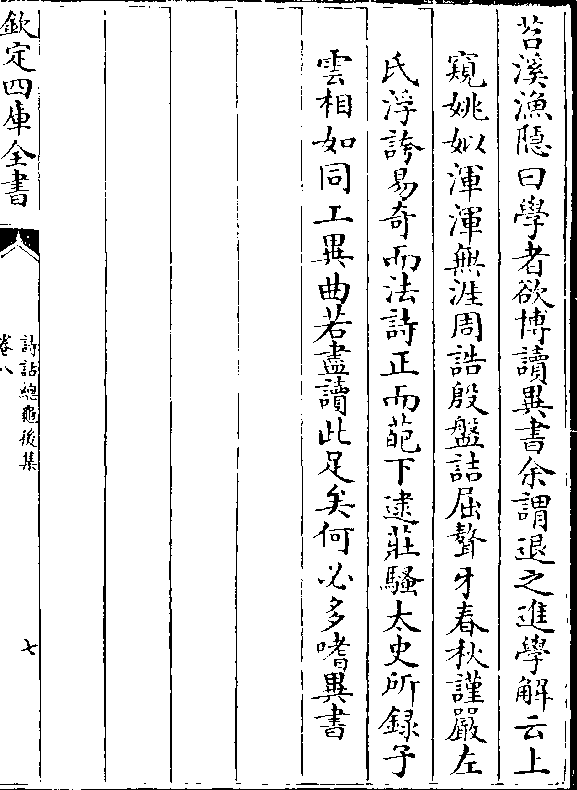 苕溪漁隠曰學者欲博讀異書余謂退之進學解云上
窺姚姒渾渾無涯周誥殷盤詰屈聱牙春秋謹嚴左
氏浮誇易奇而法詩正而葩下逮莊騷太史所録子
雲相如同工異曲若盡讀此足矣何必多嗜異書
欽定四庫全書
詩話總龜後集
卷八
七